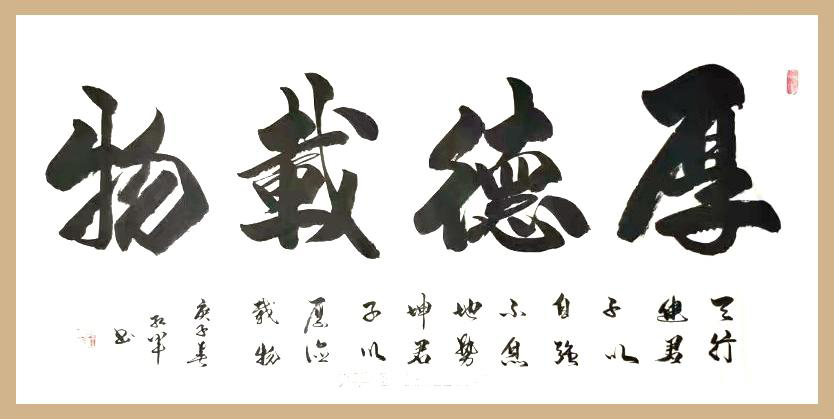 厚德載物
天行
健君
子以
自強
不息
地勢
坤君
子以
厚德
載物
庚子春
紅軍
书